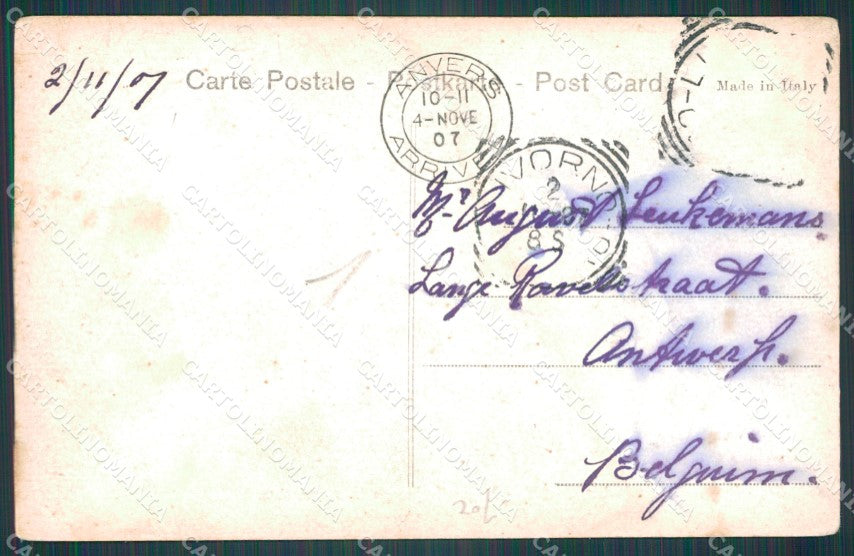 2/11/07
Carte Postale - Postkarte - Post Card
Made in Italy
ANVERS
10-11
4-NOVE
07
ARRIVÉE
LIVORNO
2
8 S
Mr August Leukemans
Lange Ravelsstraat.
Antwerp.
Belguim.
20/
CARTOLINOMANIA